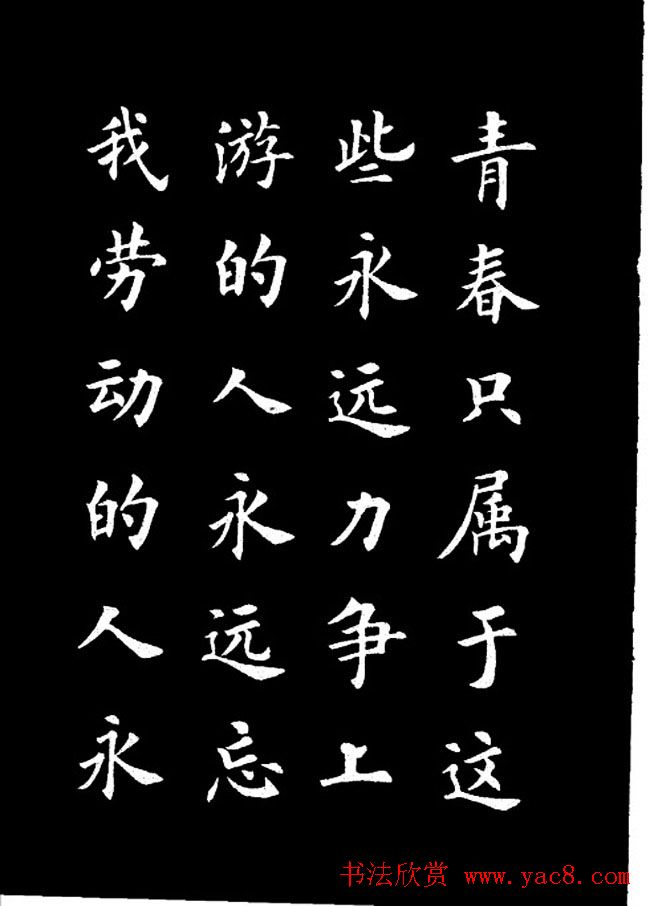 青春只属于这
些永远力争上
游的人永远忘
我劳动的人永
书法欣赏 www.yac8.com